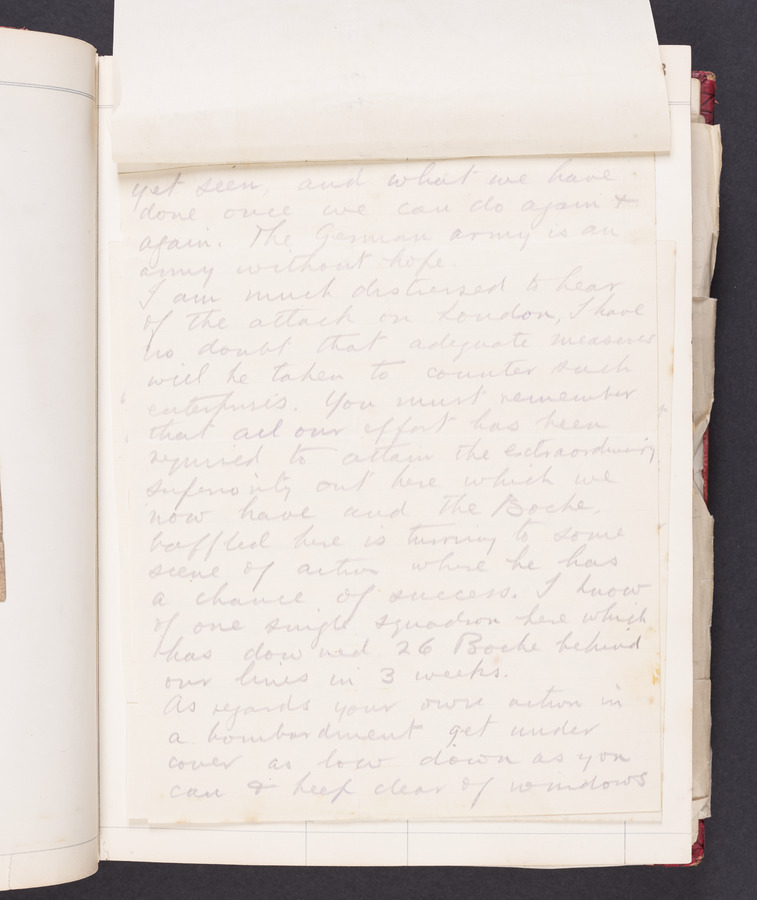 yet seen, and what we have
done once we can do again &
again. The German army is an
army without hope.
I am much distressed to hear
of the attack on London, I have
no doubt that adequate measures
will be taken to counter such
enterprises. You must remember
that all our effort has been
required to attain the extraordinary
superiority out here which we
now have and the Boche,
baffled here is turning to some
scene of action where he has
a chance of success. I know
of one single squadron here which
has downed 26 Boche behind
our lines in 3 weeks.
As regards your own action in
a bombardment get under
cover as low down as you
can & keep clear of windows